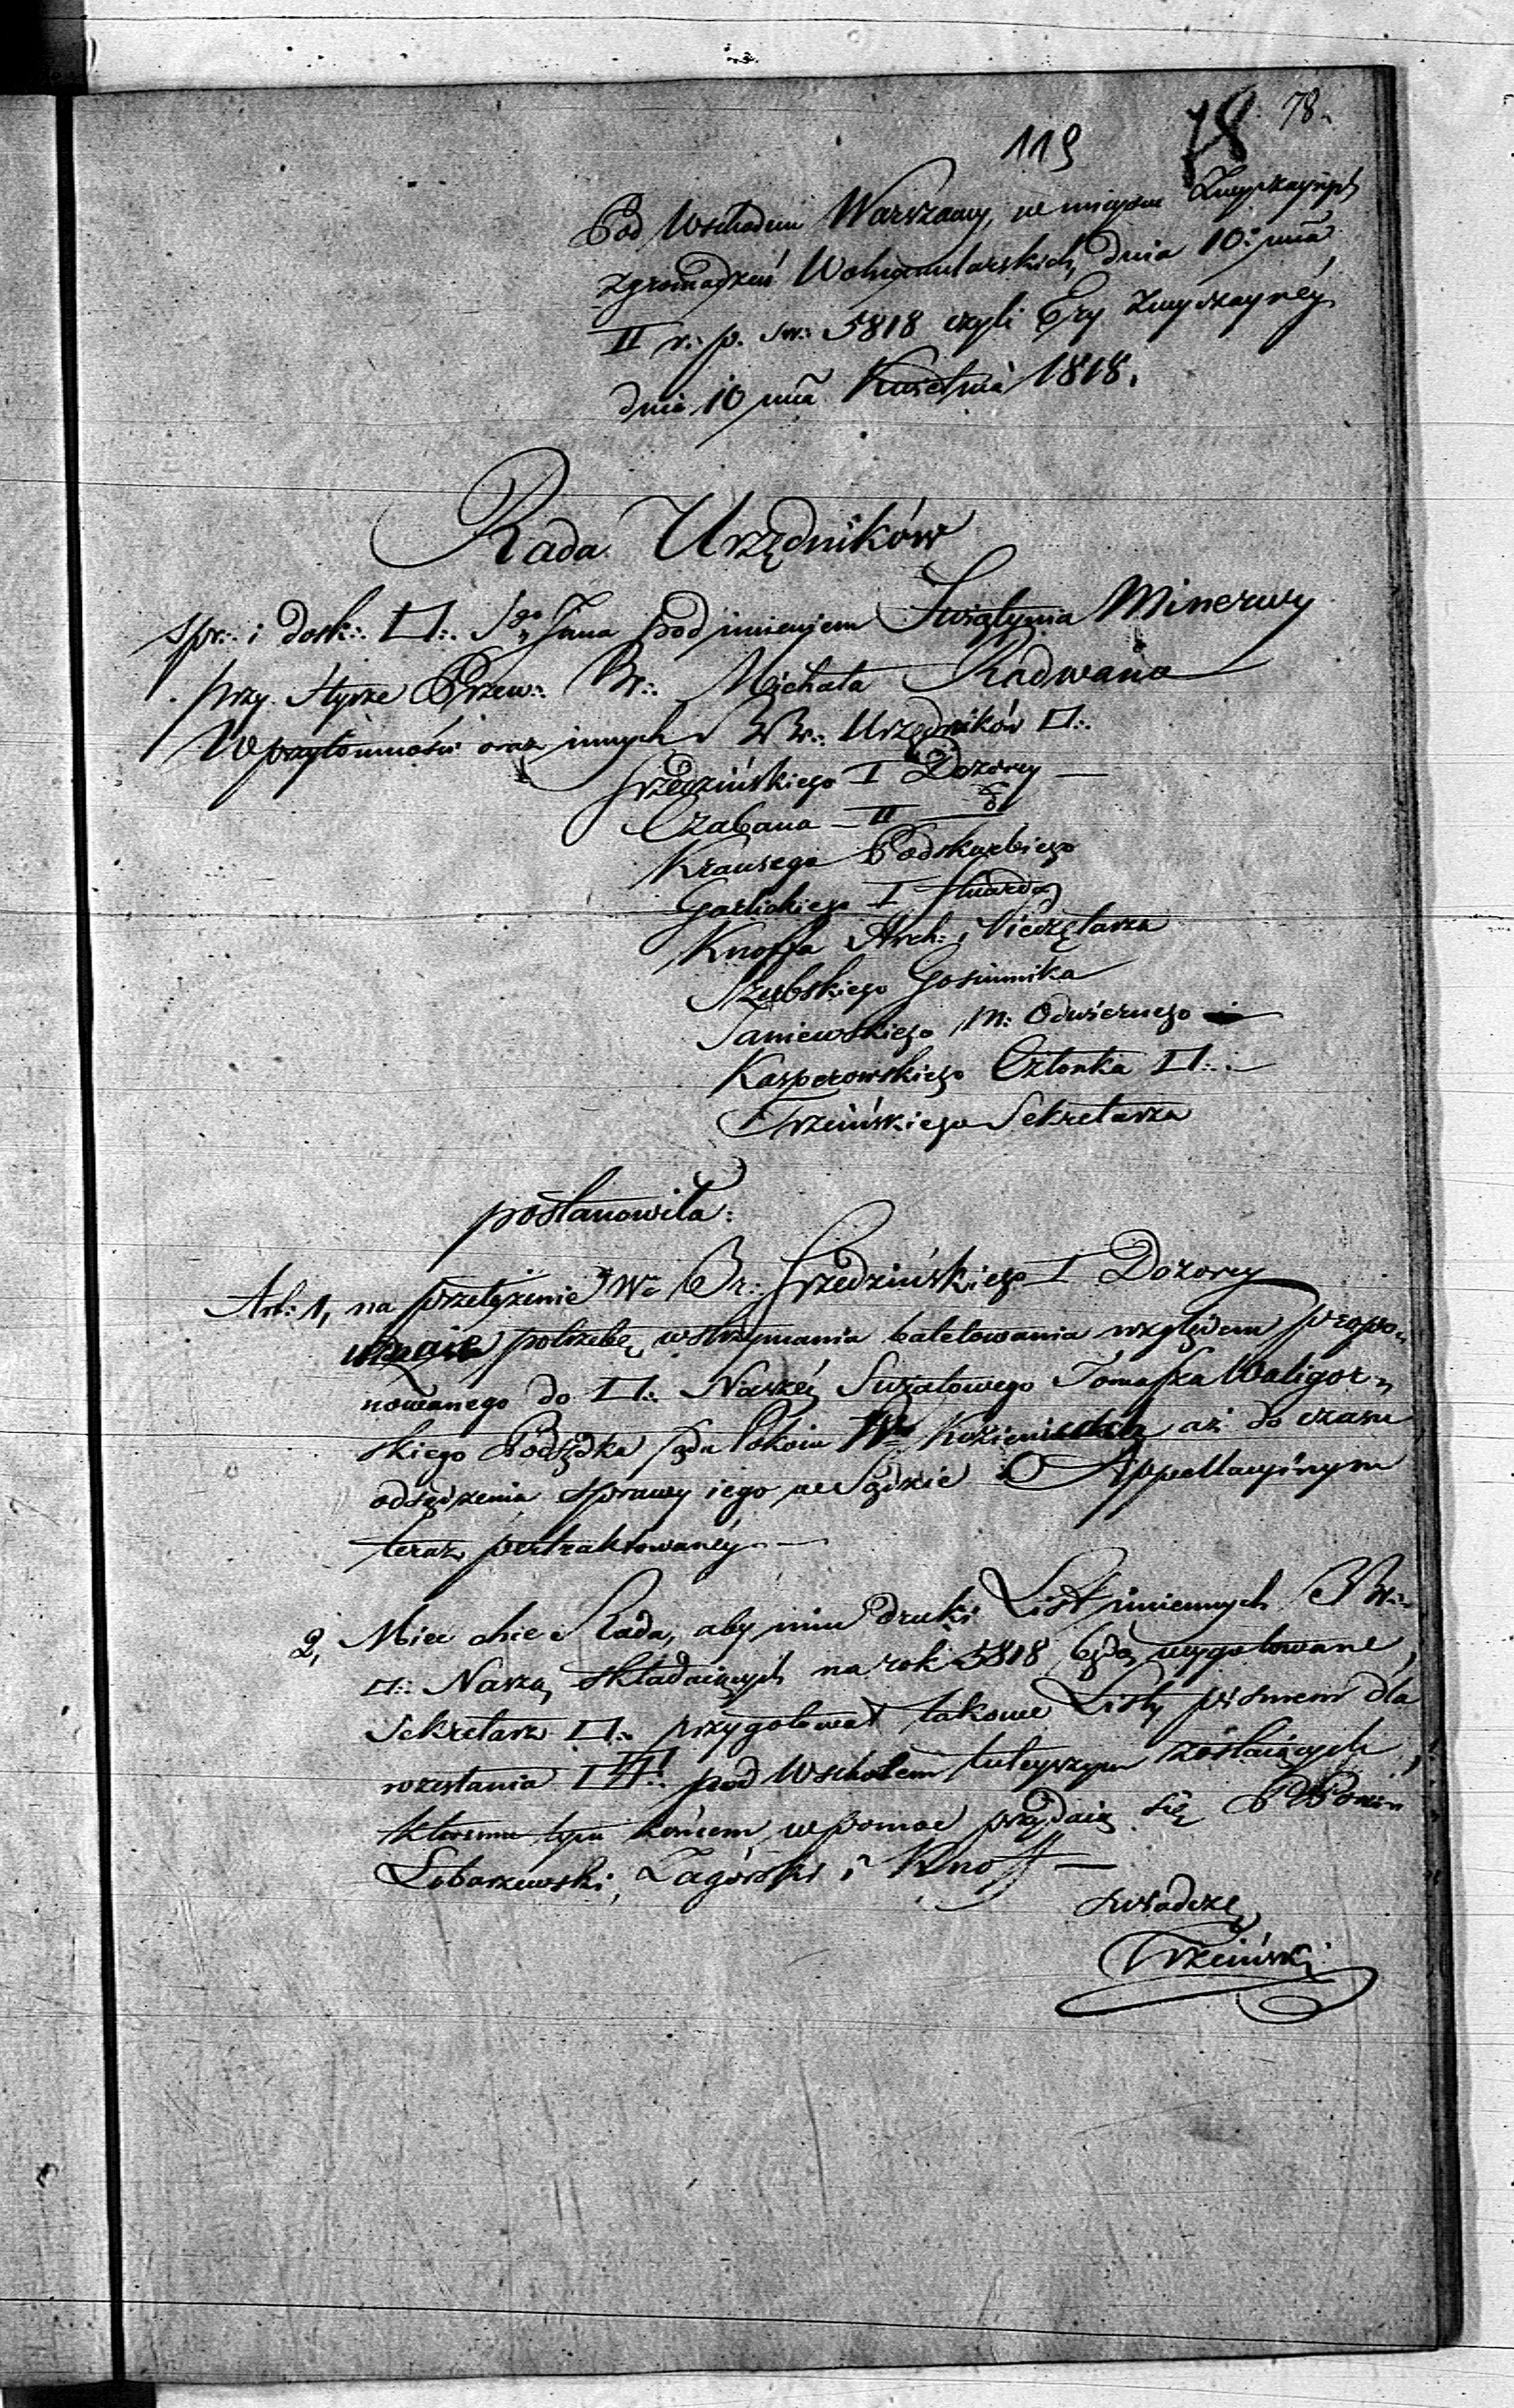 119 78 78.
Pod Wschodem Warszawy, w miejscu Zwyczaynych
zgromadzeń Wolnomularskich, dnia 10: mca
II r: p. sw: 5818 czyli Ery Zwyczayney
dnia 10 mca Kwietnia 1818.
Rada Urzędników
spr: i dosk: □: Sgo Jana pod imieniem Swiątynia Minerwy
przy Styrze Przew: Br: Michała Radwana
W przytomności oraz innych BBr: Urzędników □:
Grzedzińskiego I Dozorcy —
Czabana — II — do
Krausego Podskarbiego
Garlickiego I Stuarda
Knoffa Arch: i Pieczętarza
Szubskiego Gościnnika
Janiewskiego M: Odwiernego —
Kasperowskiego Członka □: —
Trzcińskiego Sekretarza
postanowiła:
Art: 1, na przełożenie Wo Br: Grzedzińskiego I Dozorcy
uznaie potrzebę wstrzymania baletowania względem propo„
nowanego do □: Naszéy Swiatowego Tomasza Waligor„
skiego Podsędka sądu Pokoiu Ptu Kozienickiego aż do czasu
odsądzenia sprawy iego w Sądzie Appellacyinym
teraz pertraktowanéy. —
2, Mieć chce Rada, aby nim druki List imiennych BBr:
□: Naszą składaiących na rok 5818 będą wygotowane,
Sekretarz □: przygotował takowe Listy pismem dla
rozesłania □□: pod Wschodem tuteyszym zostaiących,
któremu tym końcem w pomoc przydaią się BBrcia
Lobarzewski, Zagórski i Knoff —
swiadczę
Trzciński